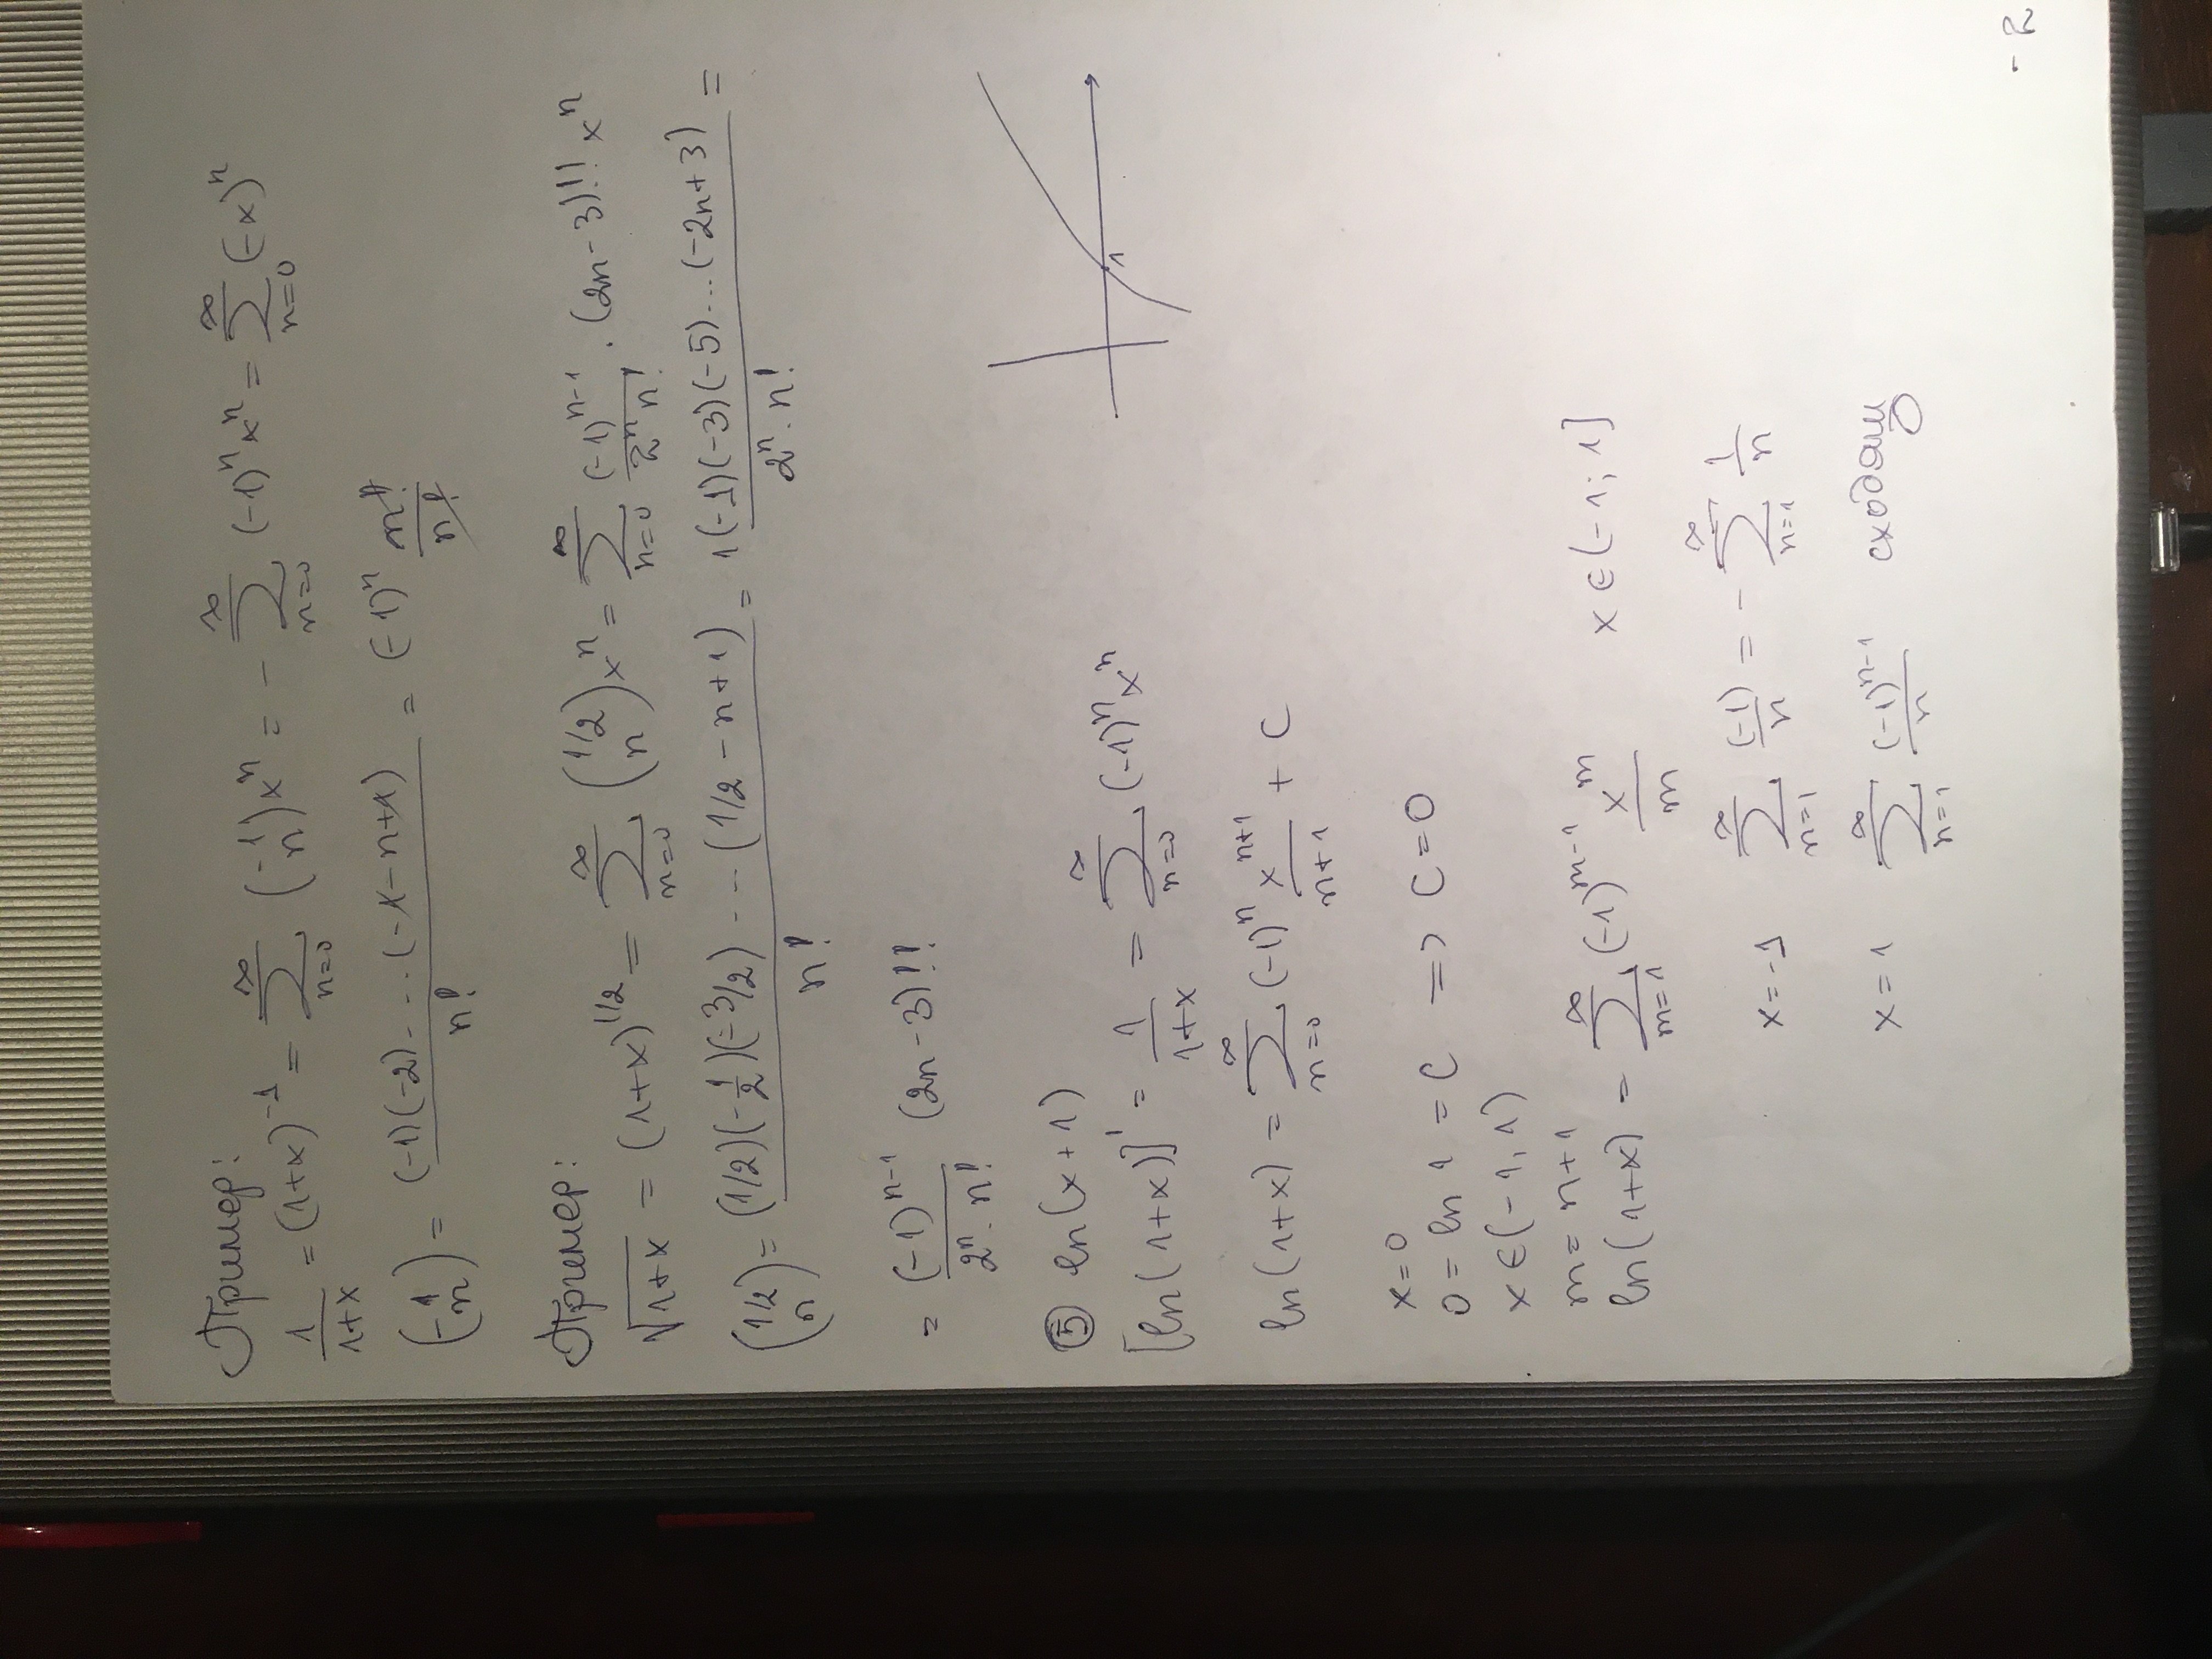 Пример:
1/(1+x) = (1+x)^{-1} = ∑_{n=0}^{∞} (-1 n) x^n = - ∑_{n=0}^{∞} (-1)^n x^n = ∑_{n=0}^{∞} (-x)^n
(-1 n) = (-1)(-2)....(-1-n+1)/n! = (-1)^n n!/n!
Пример:
√(1+x) = (1+x)^{1/2} = ∑_{n=0}^{∞} (1/2 n) x^n = ∑_{n=0}^{∞} (-1)^{n-1}/(2^n n!) · (2n-3)!! x^n
(1/2 n) = (1/2)(-1/2)(-3/2) ... (1/2 - n+1)/n! = 1(-1)(-3)(-5)...(-2n+3)/(2^n · n!) =
= (-1)^{n-1}/(2^n · n!) (2n-3)!!
⑤ ln(x+1)
[ln(1+x)]' = 1/(1+x) = ∑_{n=0}^{∞} (-1)^n x^n
1
ln(1+x) = ∑_{n=0}^{∞} (-1)^n x^{n+1}/(n+1) + C
x=0
0 = ln 1 = C => C=0
x∈(-1, 1)
m = n+1
ln(1+x) = ∑_{m=1}^{∞} (-1)^{m-1} x^m/m x∈(-1; 1]
x=-1 ∑_{n=1}^{∞} (-1)/n = - ∑_{n=1}^{∞} 1/n
x=1 ∑_{n=1}^{∞} (-1)^{n-1}/n
-2